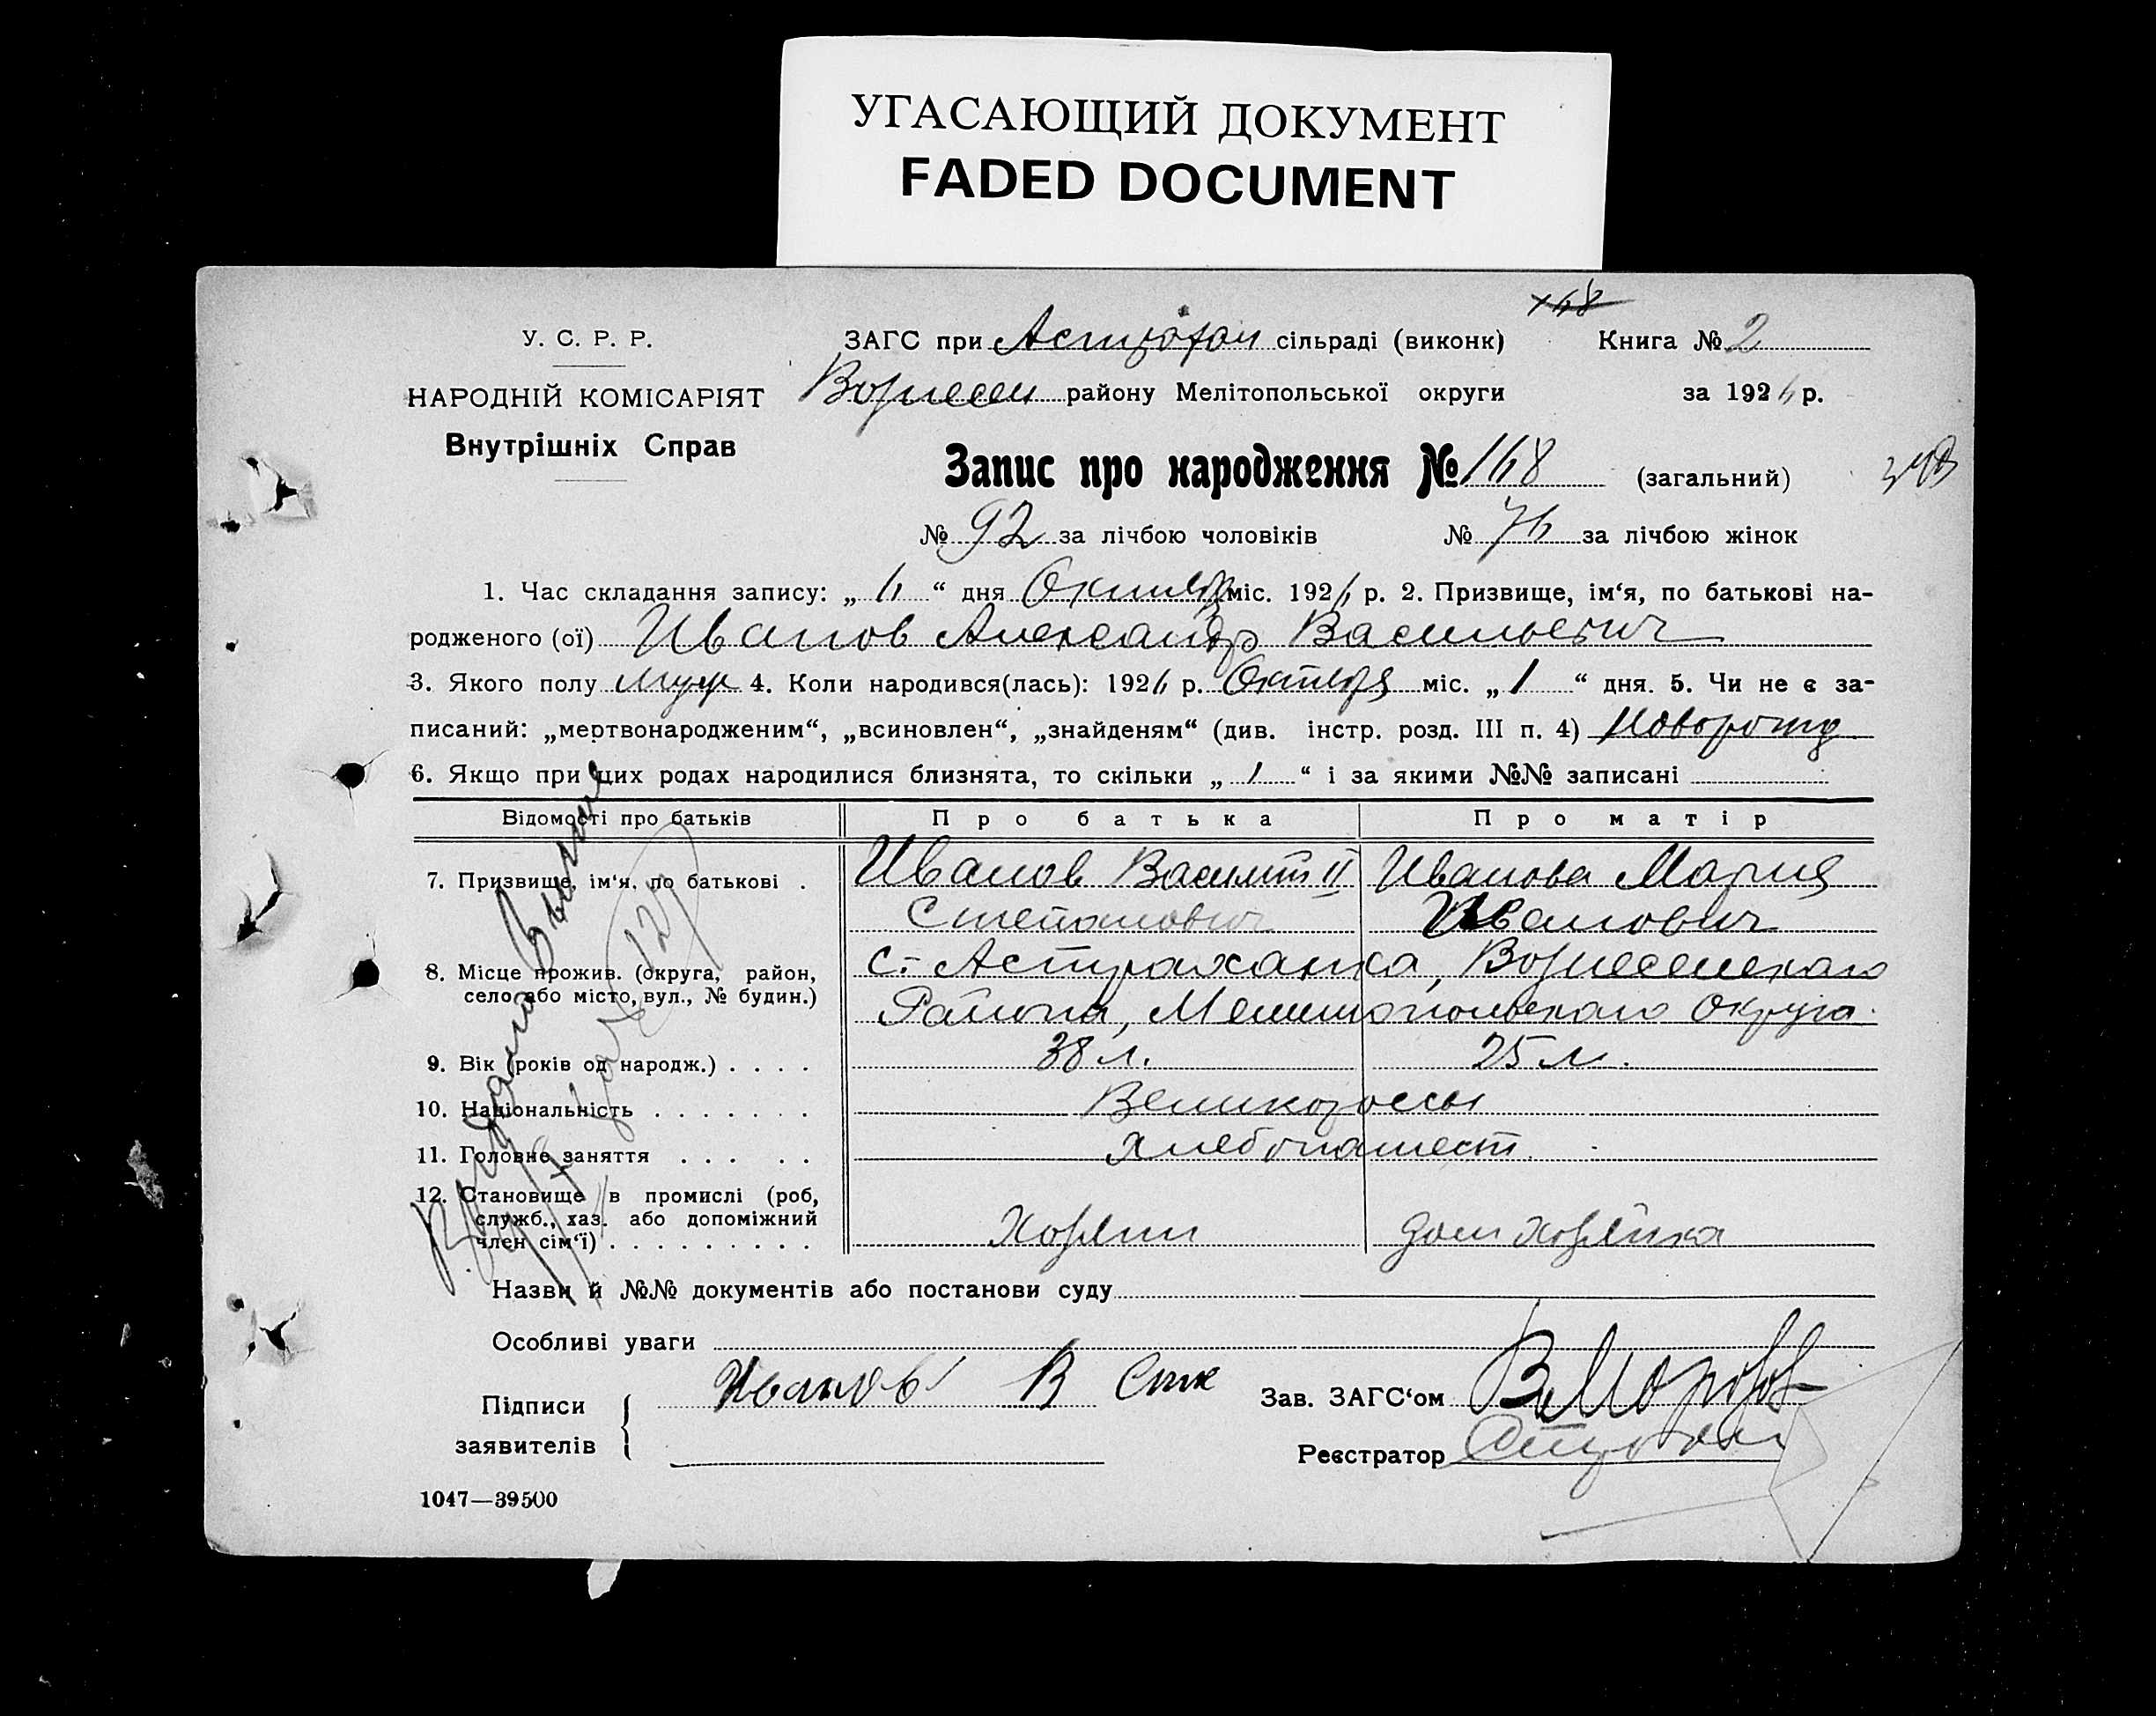 УГАСАЮЩИЙ ДОКУМЕНТ
FADED DOCUMENT
168
У. С. Р. Р.
НАРОДНІЙ КОМІСАРІЯТ
Внутрішніх Справ
ЗАГС при Астрахан сільраді (виконк) Книга № 2
Вознесен району Мелітопольської округи за 1926 р.
Запис про народження № 168 (загальний)
№ 92 за лічбою чоловіків № 76 за лічбою жінок
1. Час складання запису: „ 6 “ дня Октября міс. 1926 р. 2. Призвище, ім‘я, по батькові на-
родженого (ої) Иванов Александр Васильевич
3. Якого полу муж 4. Коли народився(лась): 1926 р. Октября міс. „ 1 “ дня. 5. Чи не є за-
писаний: „мертвонародженим“, „всиновлен“, „знайденям“ (див. інстр. розд. III п. 4) Оноворожд
6. Якщо при цих родах народилися близнята, то скільки „ 1 “ і за якими №№ записані
Відомості про батьків Про батька Про матір
7. Призвище, ім‘я, по батькові . Иванов Василий II Иванова Мария
Степанович Иванович
8. Місце прожив. (округа, район,
село або місто, вул., № будин.)
с. Астраханка, Вознесенскаго
Района, Мелитопольскаго Округа.
9. Вік (років од народж.) . . . . 38 л. 25 л.
10. Національність . . . . . . . Великороссы
11. Головне заняття . . . . . Хлебопашест.
12. Становище в промислі (роб,
служб., хаз. або допоміжний
член сім‘ї) . . . . . . . . . Хозяин дом хозяйка
Назви й №№ документів або постанови суду
Особливі уваги
Підписи
заявителів
Иванов В Сте
Зав. ЗАГС‘ом ВМорозов
Реєстратор
1047—39500